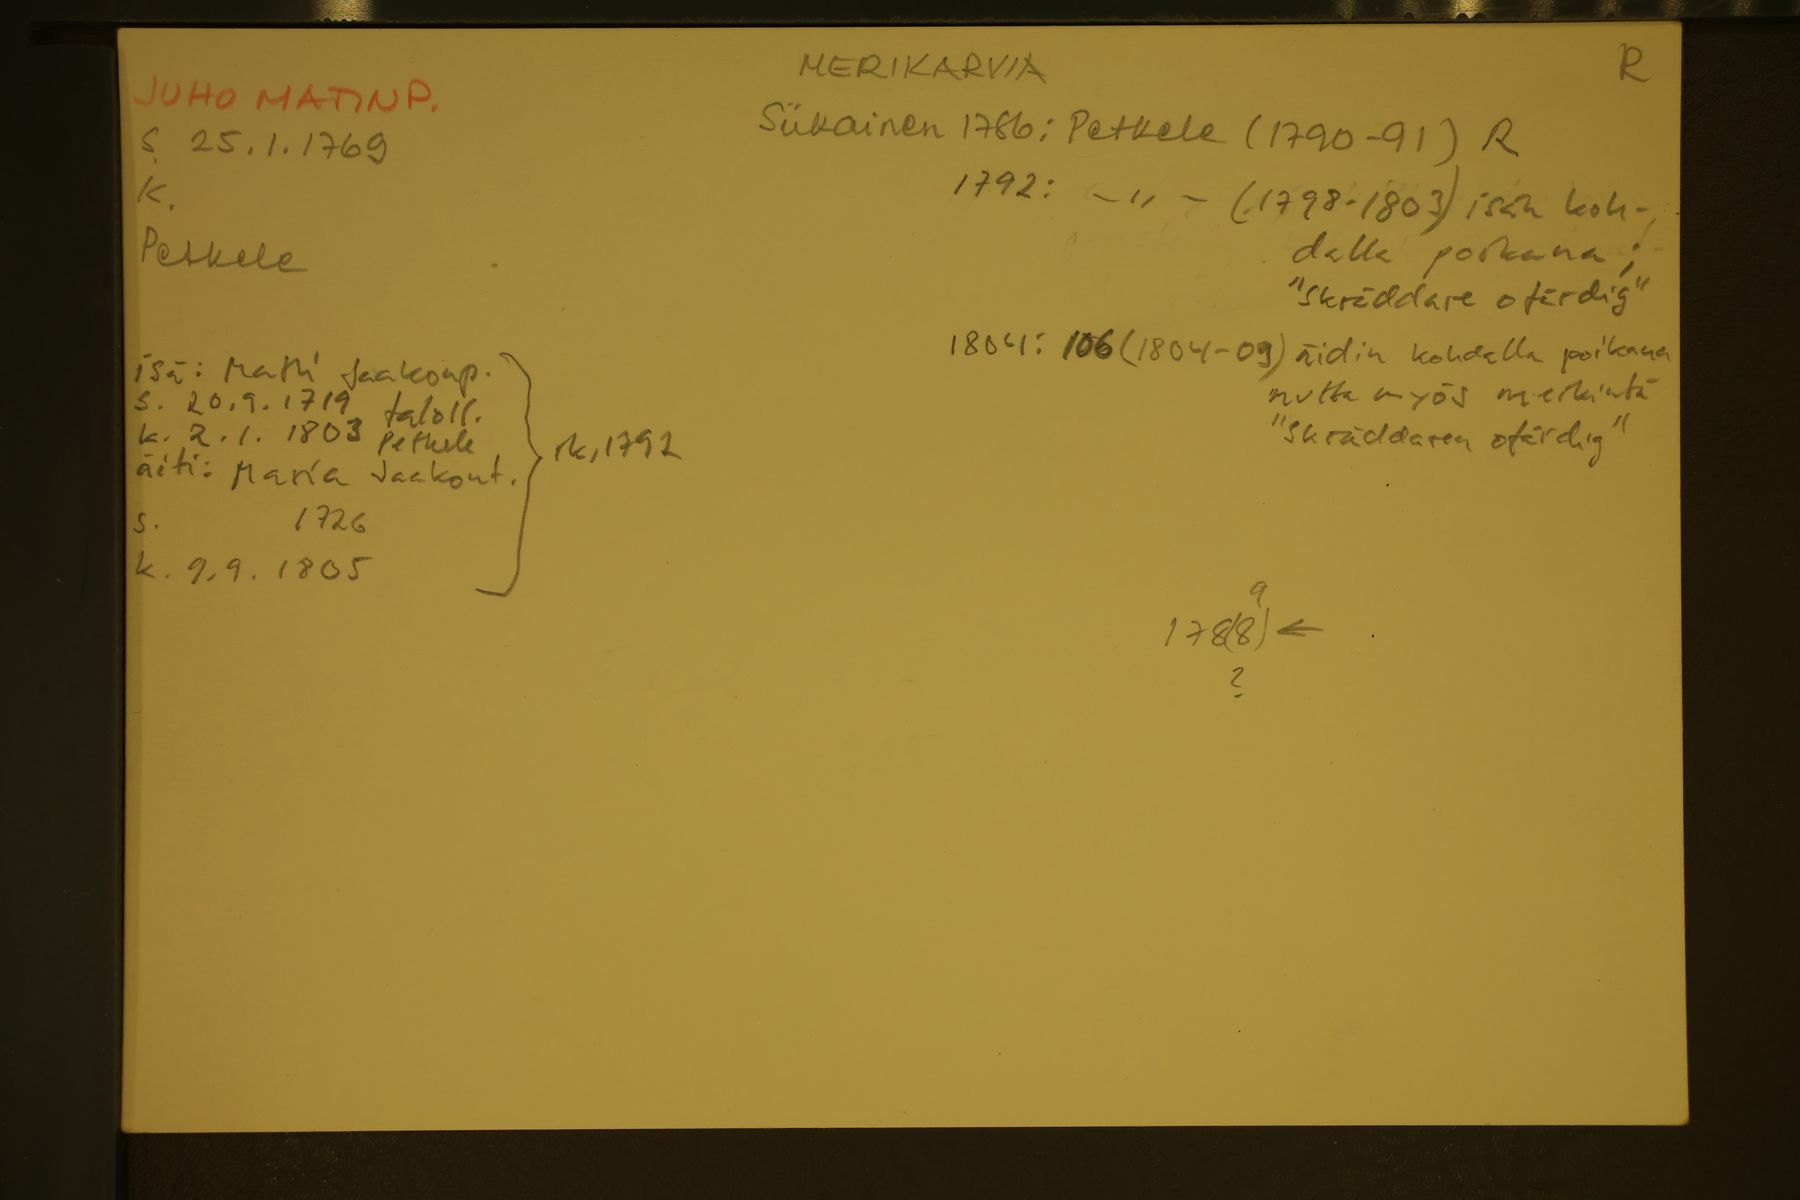 MERIKARVIA
R
JUHO MATINP.
s. 25.1.1769
k.
Petkele
Siikainen 1786: Petkele (1790-91) R
1792: -"- (1798-1803) isän koh-
dalla poikana;
"Skräddare ofärdig"
1804: 106 (1804-09) äidin kohdalla poikana
mutta myös merkintä
"Skräddaren ofärdig"
isä: Matti Jaakonp.
s. 20.9.1719 taloll.
k. 2.1.1803 Petkele
äiti: Maria Jaakont.
s. 1726
k. 9.9.1805
rk, 1792
9
178(8) ←
?